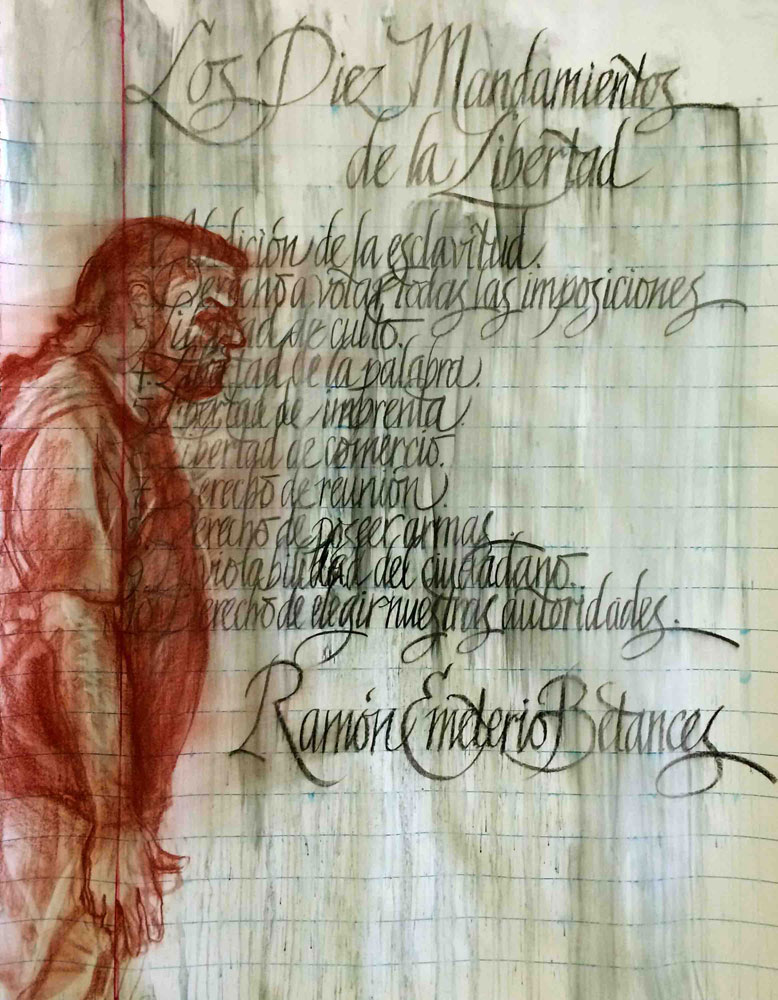 Los Diez Mandamientos
de la Libertad
1. Abolición de la esclavitud.
2. Derecho a votar todas las imposiciones.
3. Libertad de culto.
4. Libertad de la palabra.
5. Libertad de imprenta.
6. Libertad de comercio.
7. Derecho de reunión.
8. Derecho de poseer armas.
9. Inviolabilidad del ciudadano.
10. Derecho de elegir nuestras autoridades.
Ramón Emeterio Betances